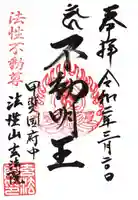 奉拝 令和二年三月二十日
不動明王
甲斐国府中
法性不動尊
法性山玄法院